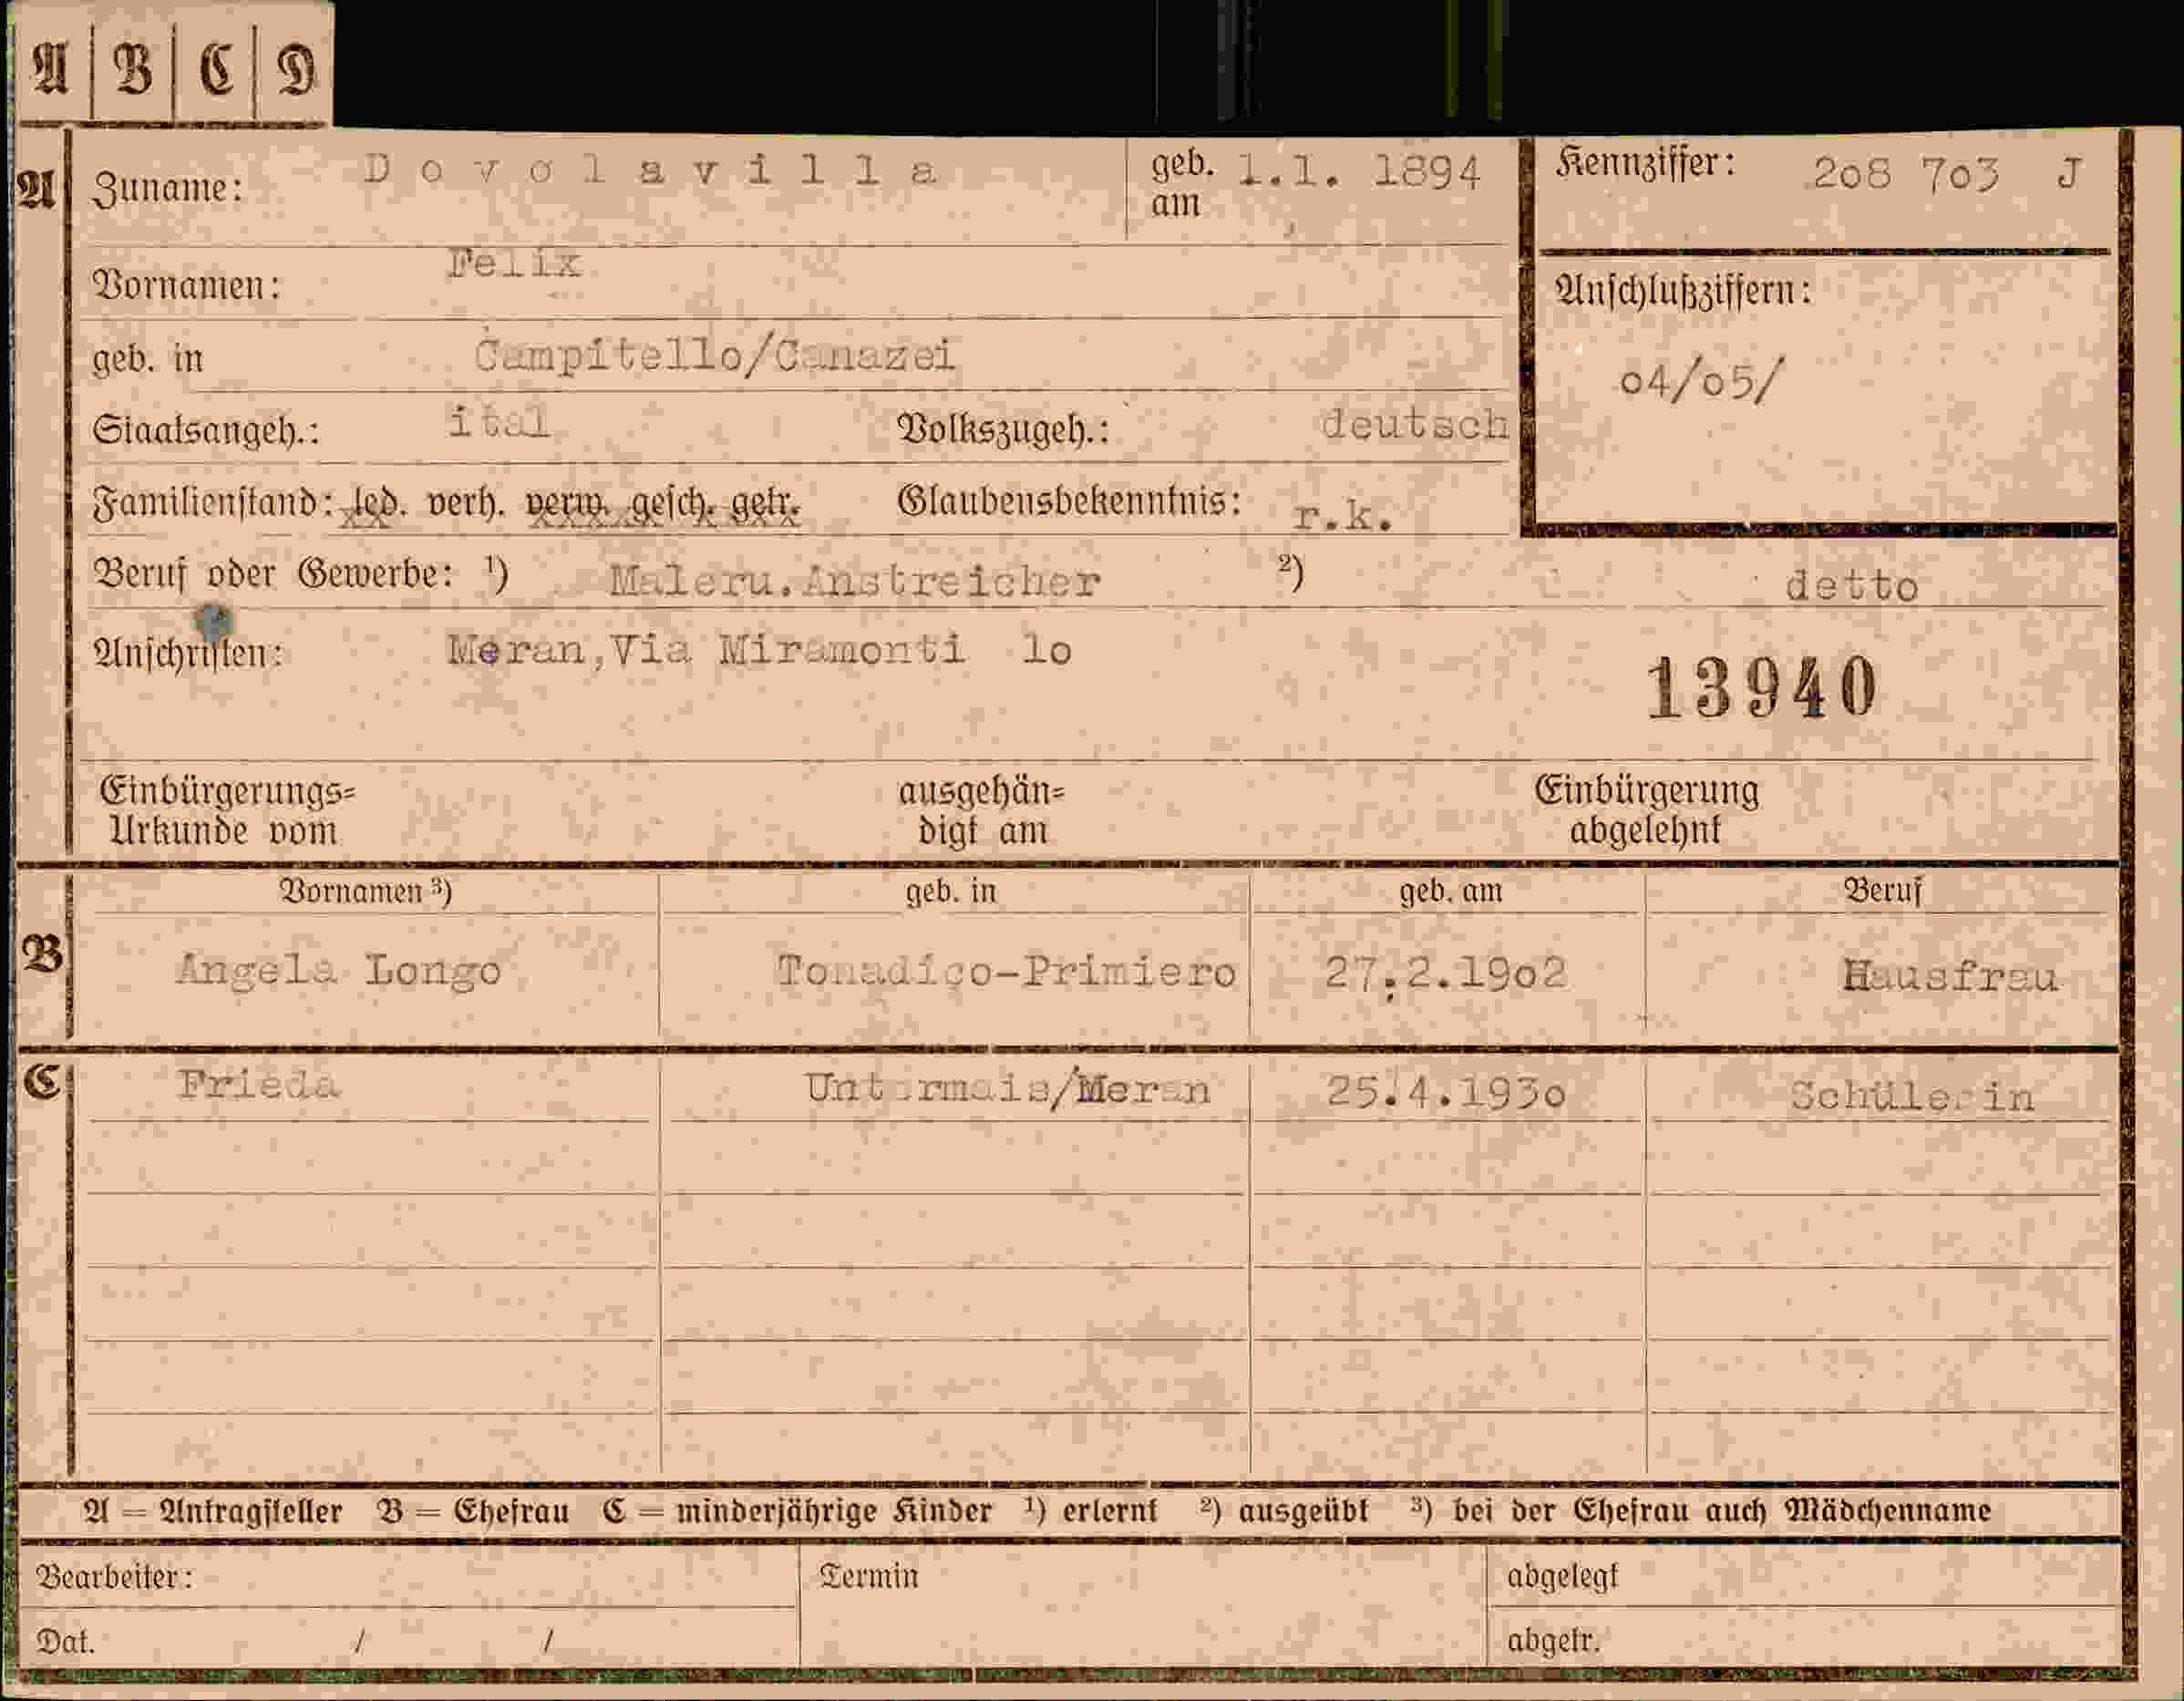 A B C D
A Zuname: Dovolavilla geb. am 1.1. 1894 Kennziffer: 2o8 7o3 J
Vornamen: Felix
Anschlußziffern:
geb. in Campitello/Canazei
o4/o5/
Staatsangeh.: ital Volkszugeh.: deutsch
Familienstand: led. verh. verw. gesch. getr. Glaubensbekenntnis: r.k.
Beruf oder Gewerbe: ¹) Maleru.Anstreicher ²) detto
Anschriften: Meran,Via Miramonti lo
13940
Einbürgerungs= ausgehän= Einbürgerung
Urkunde vom digt am abgelehnt
Vornamen ³) geb. in geb. am Beruf
B Angela Longo Tonadico-Primiero 27.2.19o2 Hausfrau
C Frieda Untermais/Meran 25.4.193o Schülerin
A = Antragsteller B = Ehefrau C = minderjährige Kinder ¹) erlernt ²) ausgeübt ³) bei der Ehefrau auch Mädchenname
Bearbeiter: Termin abgelegt
Dat. / / abgetr.